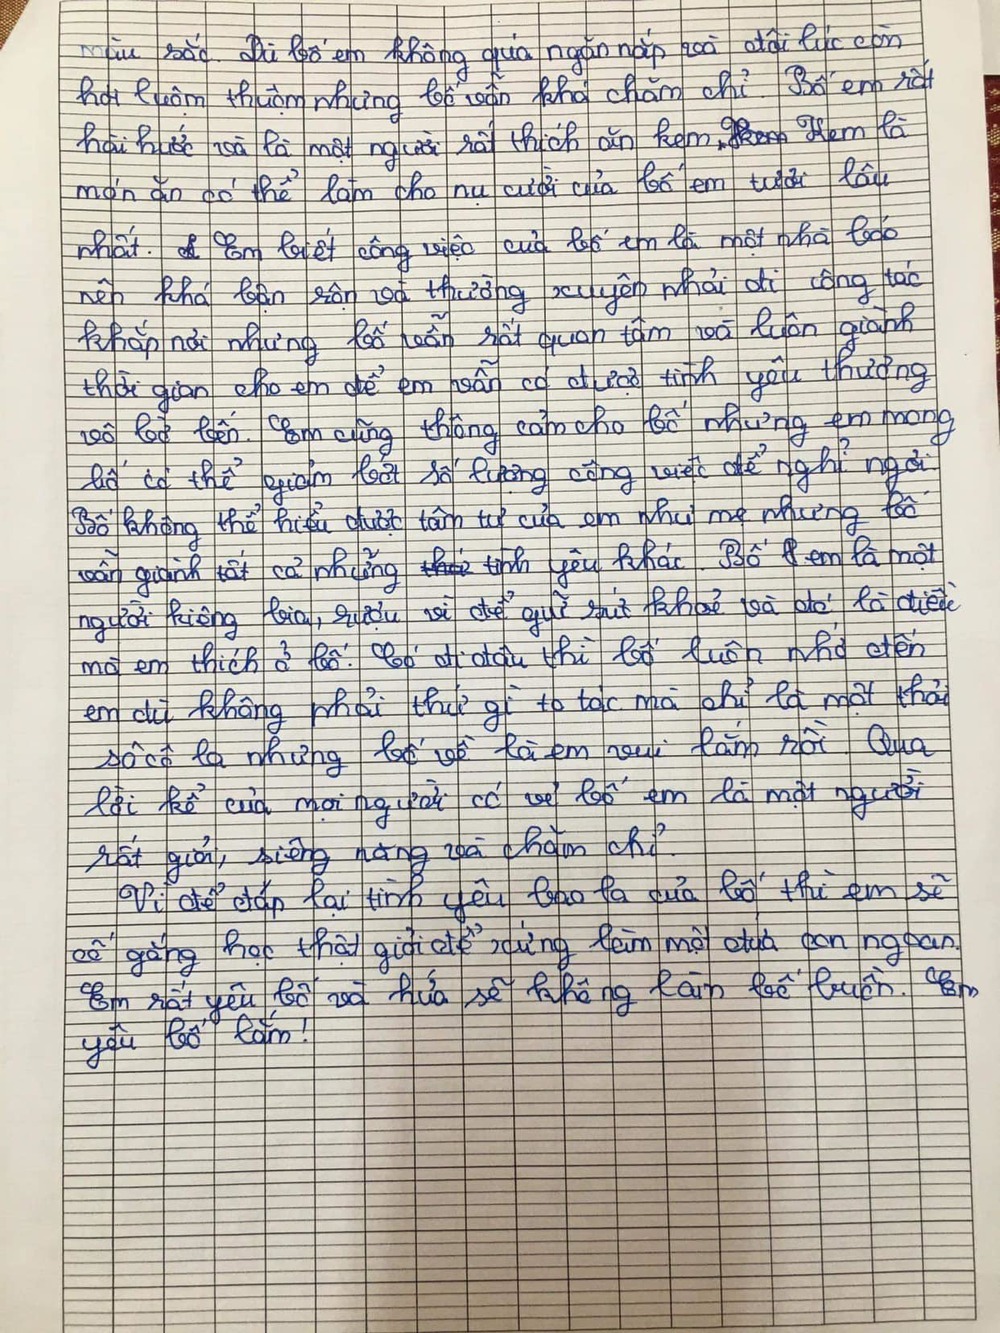 màu sắc. Dù bố em không quá ngăn nắp và đôi lúc còn
hơi luộm thuộm nhưng bố vẫn khá chăm chỉ. Bố em rất
hài hước và là một người rất thích ăn kem, Kem là
món ăn có thể làm cho nụ cười của bố em tươi lâu
nhất. Em biết công việc của bố em là một nhà báo
nên khá bận rộn và thường xuyên phải đi công tác
khắp nơi nhưng bố vẫn rất quan tâm và luôn giành
thời gian cho em để em vẫn có được tình yêu thương
vô bờ bến. Em cũng thông cảm cho bố nhưng em mong
bố có thể giảm bớt số lượng công việc để nghỉ ngơi
Bố không thể hiểu được tâm tư của em như mẹ nhưng bố
vẫn giành tất cả những tình yêu khác. Bố em là một
người kiêng bia, rượu vì để giữ sức khoẻ và đó là điều
mà em thích ở bố. Bố đi đâu thì bố luôn nhớ đến
em dù không phải thứ gì to tác mà chỉ là một thải
sôcô la nhưng bố về là em vui lắm rồi. Qua
lời kể của mọi người có vẻ bố em là một người
rất giỏi, siêng năng và chăm chỉ.
Vì để đáp lại tình yêu bao la của bố thì em sẽ
cố gắng học thật giỏi để xứng làm một đứa con ngoan.
Em rất yêu bố và hứa sẽ không làm bố buồn. Em
yêu bố lắm!